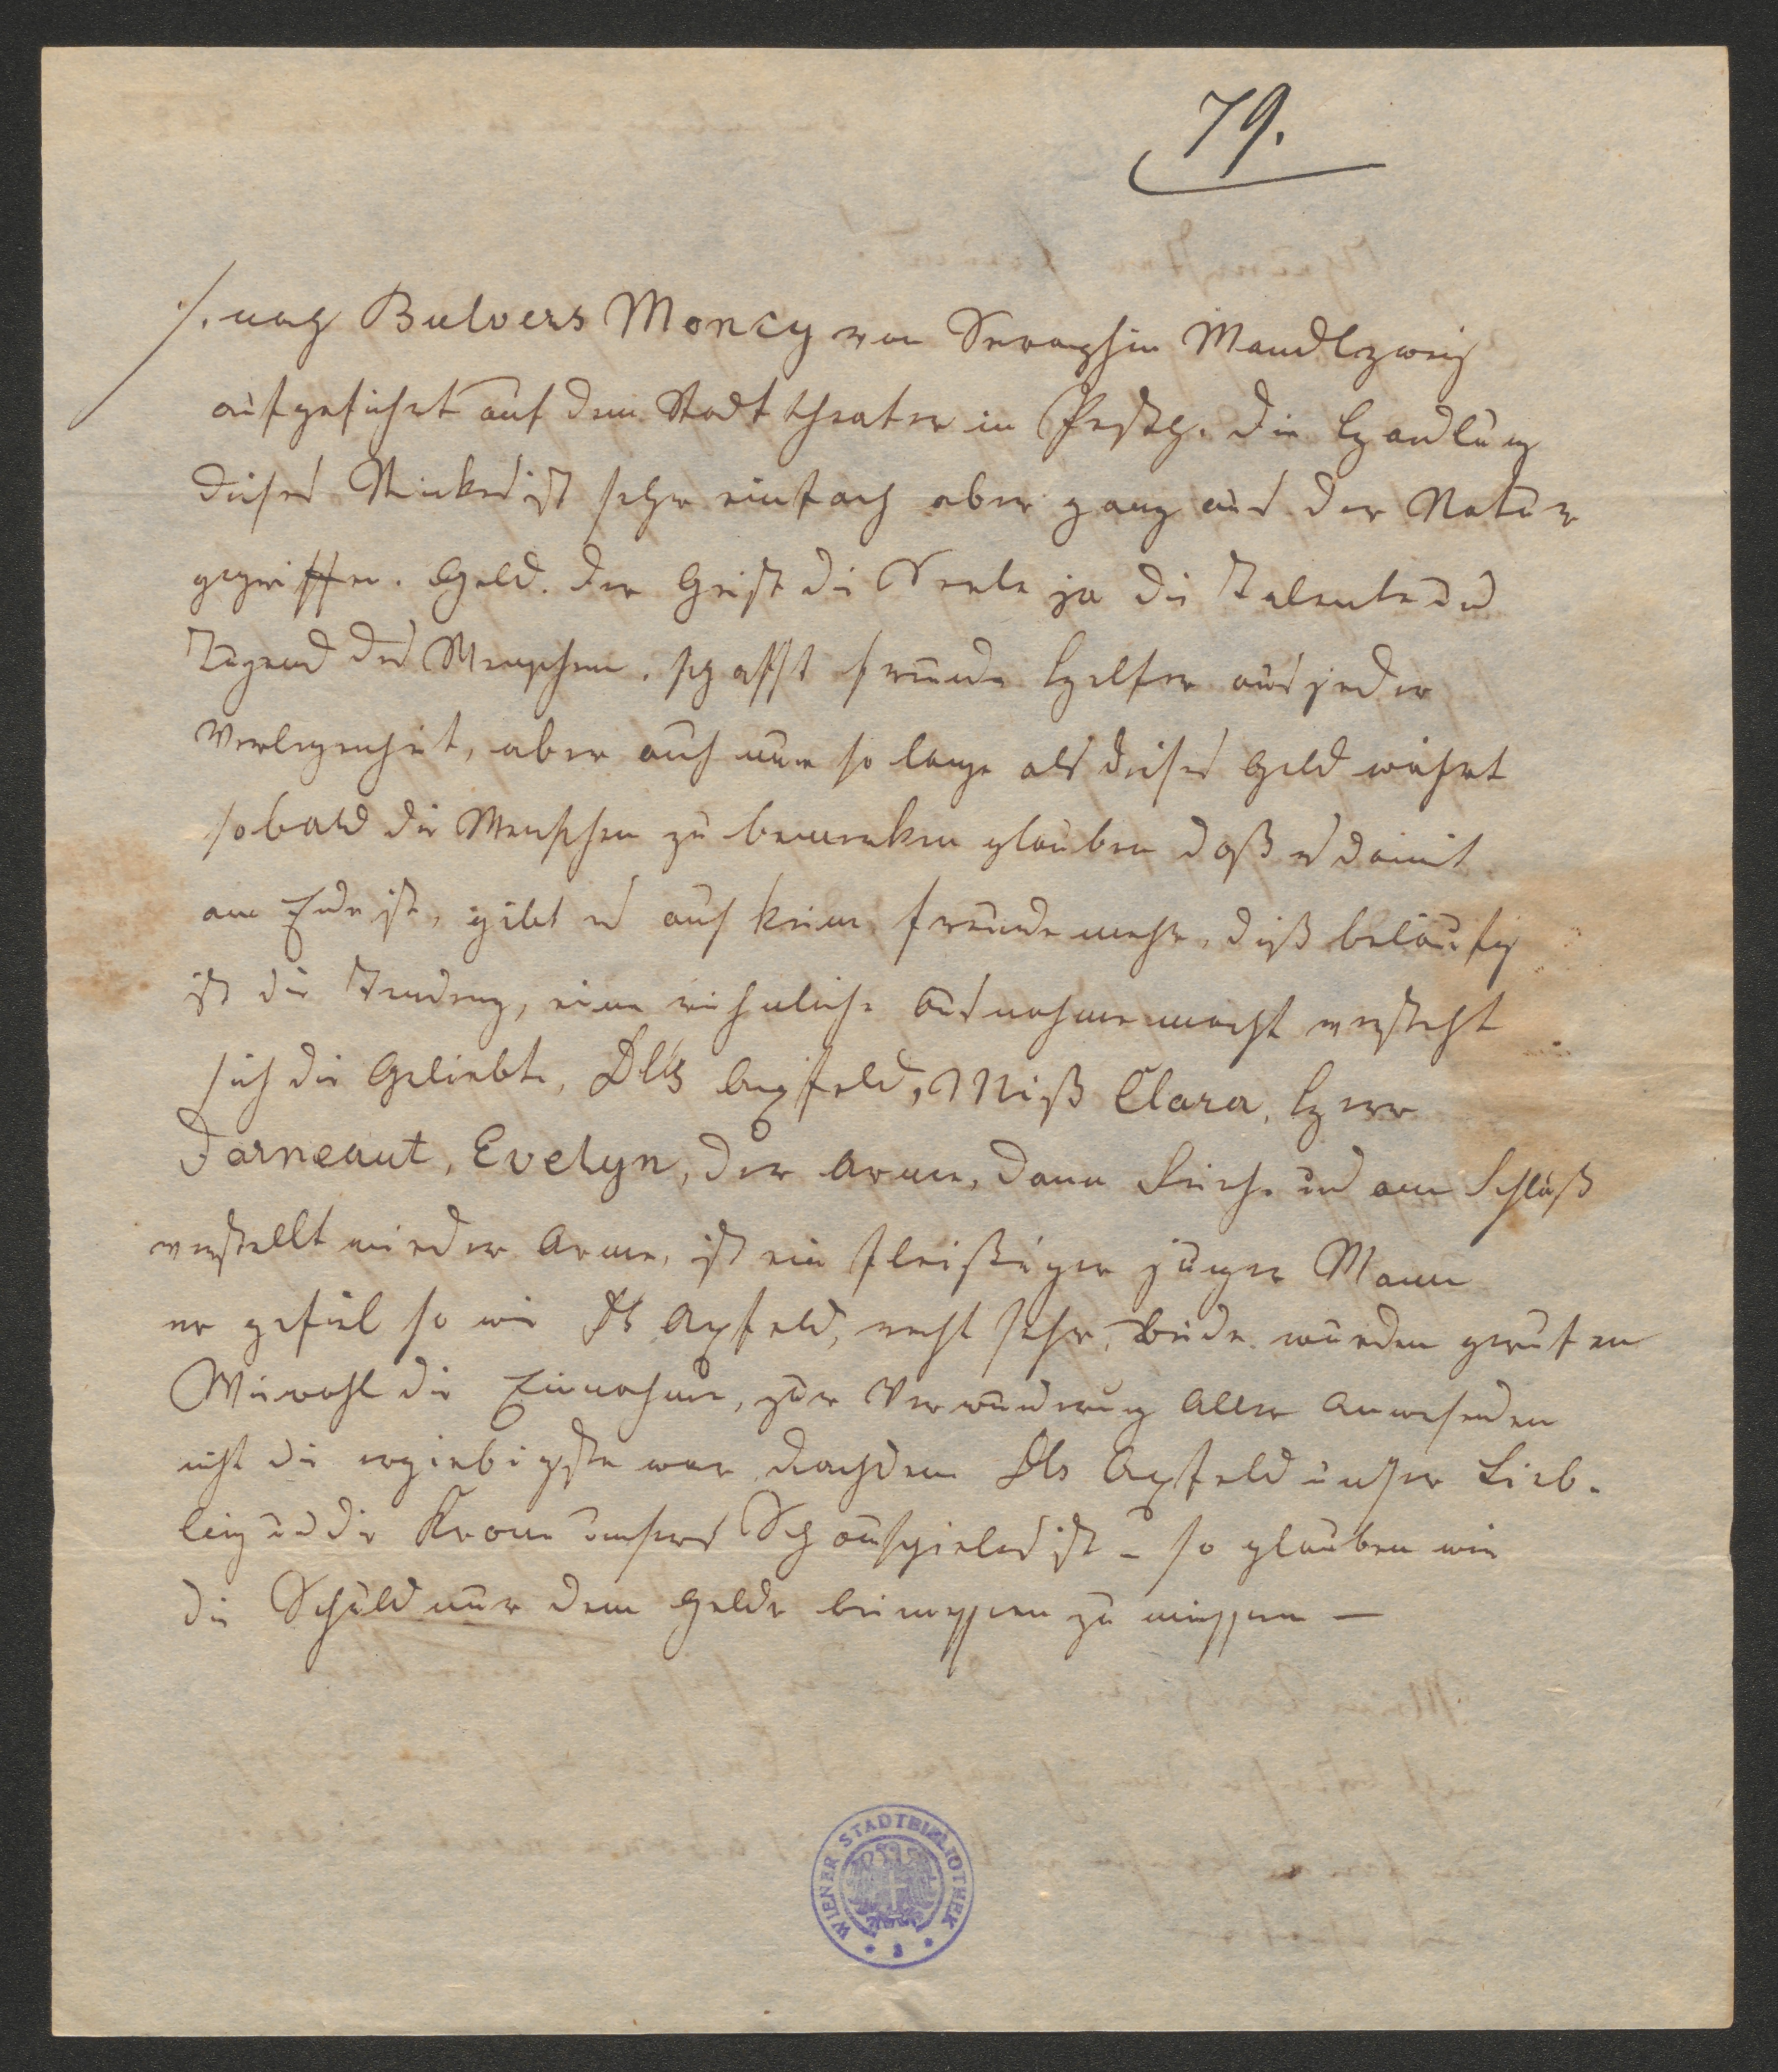 79.
/. nach Bulvers Moncy von Seraphin Mandlzweig
aufgeführt auf dem Stadttheater in Pesth. Die Handlung
dieses Stückes ist sehr einfach aber ganz aus der Natur
gegriffen. Geld. der Geist die Seele ja die Talente u
Tugend des Menschen. schafft freunde Helfer aus jeder
Verlegenheit, aber auch nur so lange als dieses Geld währt
sobald die Menschen zu bemerken glauben daß es damit
am Ende ist, gibt es auch keine freunde mehr, diß beläufig
ist die Tendenz, eine rühmliche Ausnahme macht versteht
sich die Geliebte, Dlle Apfeld, Miß Clara, Herr
Darneaut, Evelyn, der Arme, dann Reiche und am Schluß
verstellt wieder Arme, ist ein fleißiger junger Mann
er gefiel so wie Dlle Apfeld, recht sehr, Beide wurden gerufen
Wiewohl die Einnahme, zur Verwunderung Aller Anwesenden
nicht die ergiebigste war nachdem Dlle Apfeld unser Lieb-
ling und die Krone unseres Schauspieles ist – so glauben wir
die Schuld nur dem Gelde beimessen zu müssen —
WIENER STADTBIBLIOTHEK